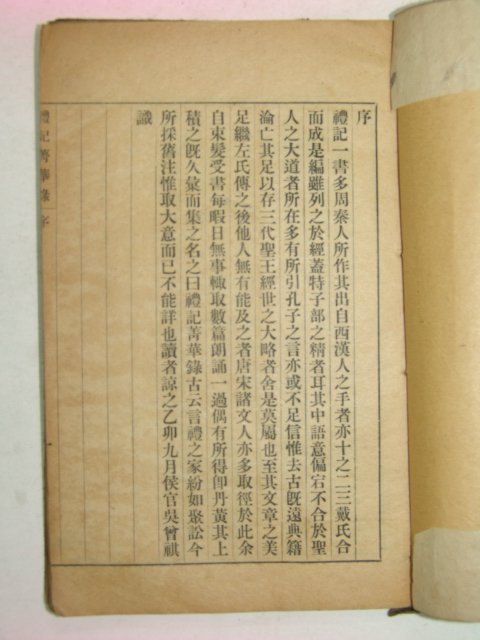 序
禮記一書多周秦人所作其出自西漢人之手者亦十之二三戴氏合
而成是編雖列之於經蓋特子部之精者耳其中語意偏宕不合於聖
人之大道者所在多有所引孔子之言亦或不足信惟去古既遠典籍
淪亡其足以存三代聖王經世之大略者舍是莫屬也至其文章之美
足繼左氏傳之後他人無有能及之者唐宋諸文人亦多取徑於此余
自束髮受書每暇日無事輙取數篇朗誦一過偶有所得卽丹黃其上
積之既久彙而集之名之曰禮記菁華錄古云言禮之家紛如聚訟今
所採舊注惟取大意而已不能詳也讀者諒之乙卯九月侯官吳曾祺
識
禮記菁華錄 序